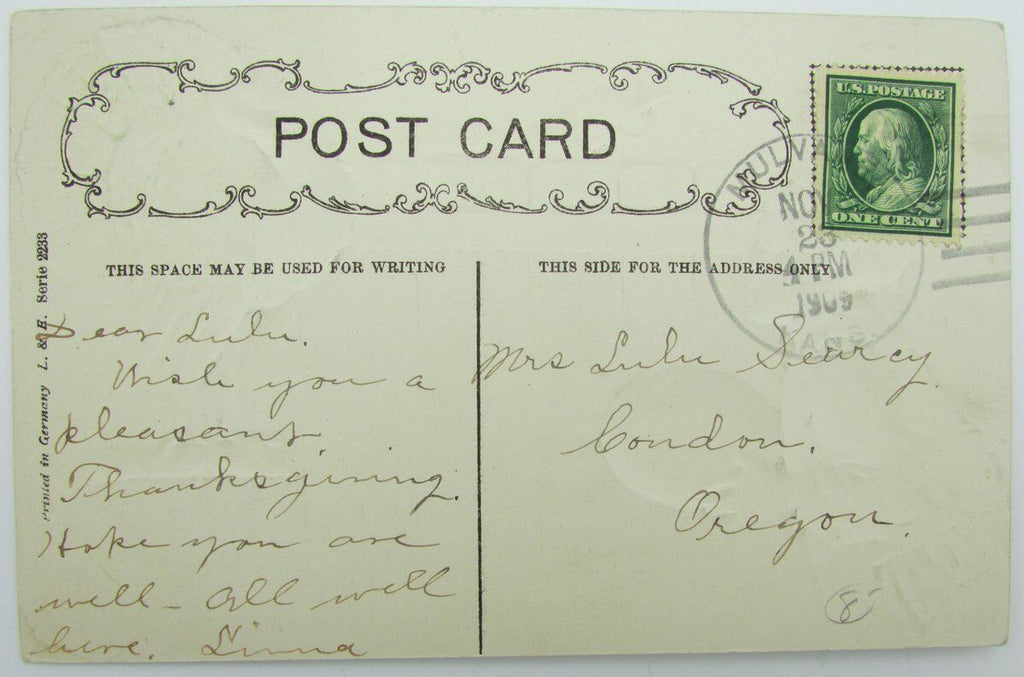 POST CARD
U.S. POSTAGE
ONE CENT
MULVA
NO
23
4 PM
1909
KANS.
THIS SPACE MAY BE USED FOR WRITING
THIS SIDE FOR THE ADDRESS ONLY
Printed in Germany L. & E. Serie 2233
Dear Lulu.
Wish you a
pleasant
Thanksgiving.
Hope you are
well - All well
here. Linna
Mrs Lulu Searcy
Condon.
Oregon.
8